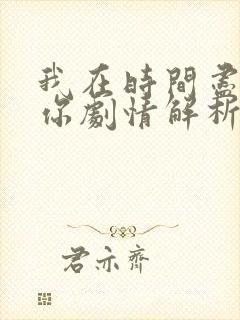 我在時間盡
你劇情解析
君亦齊